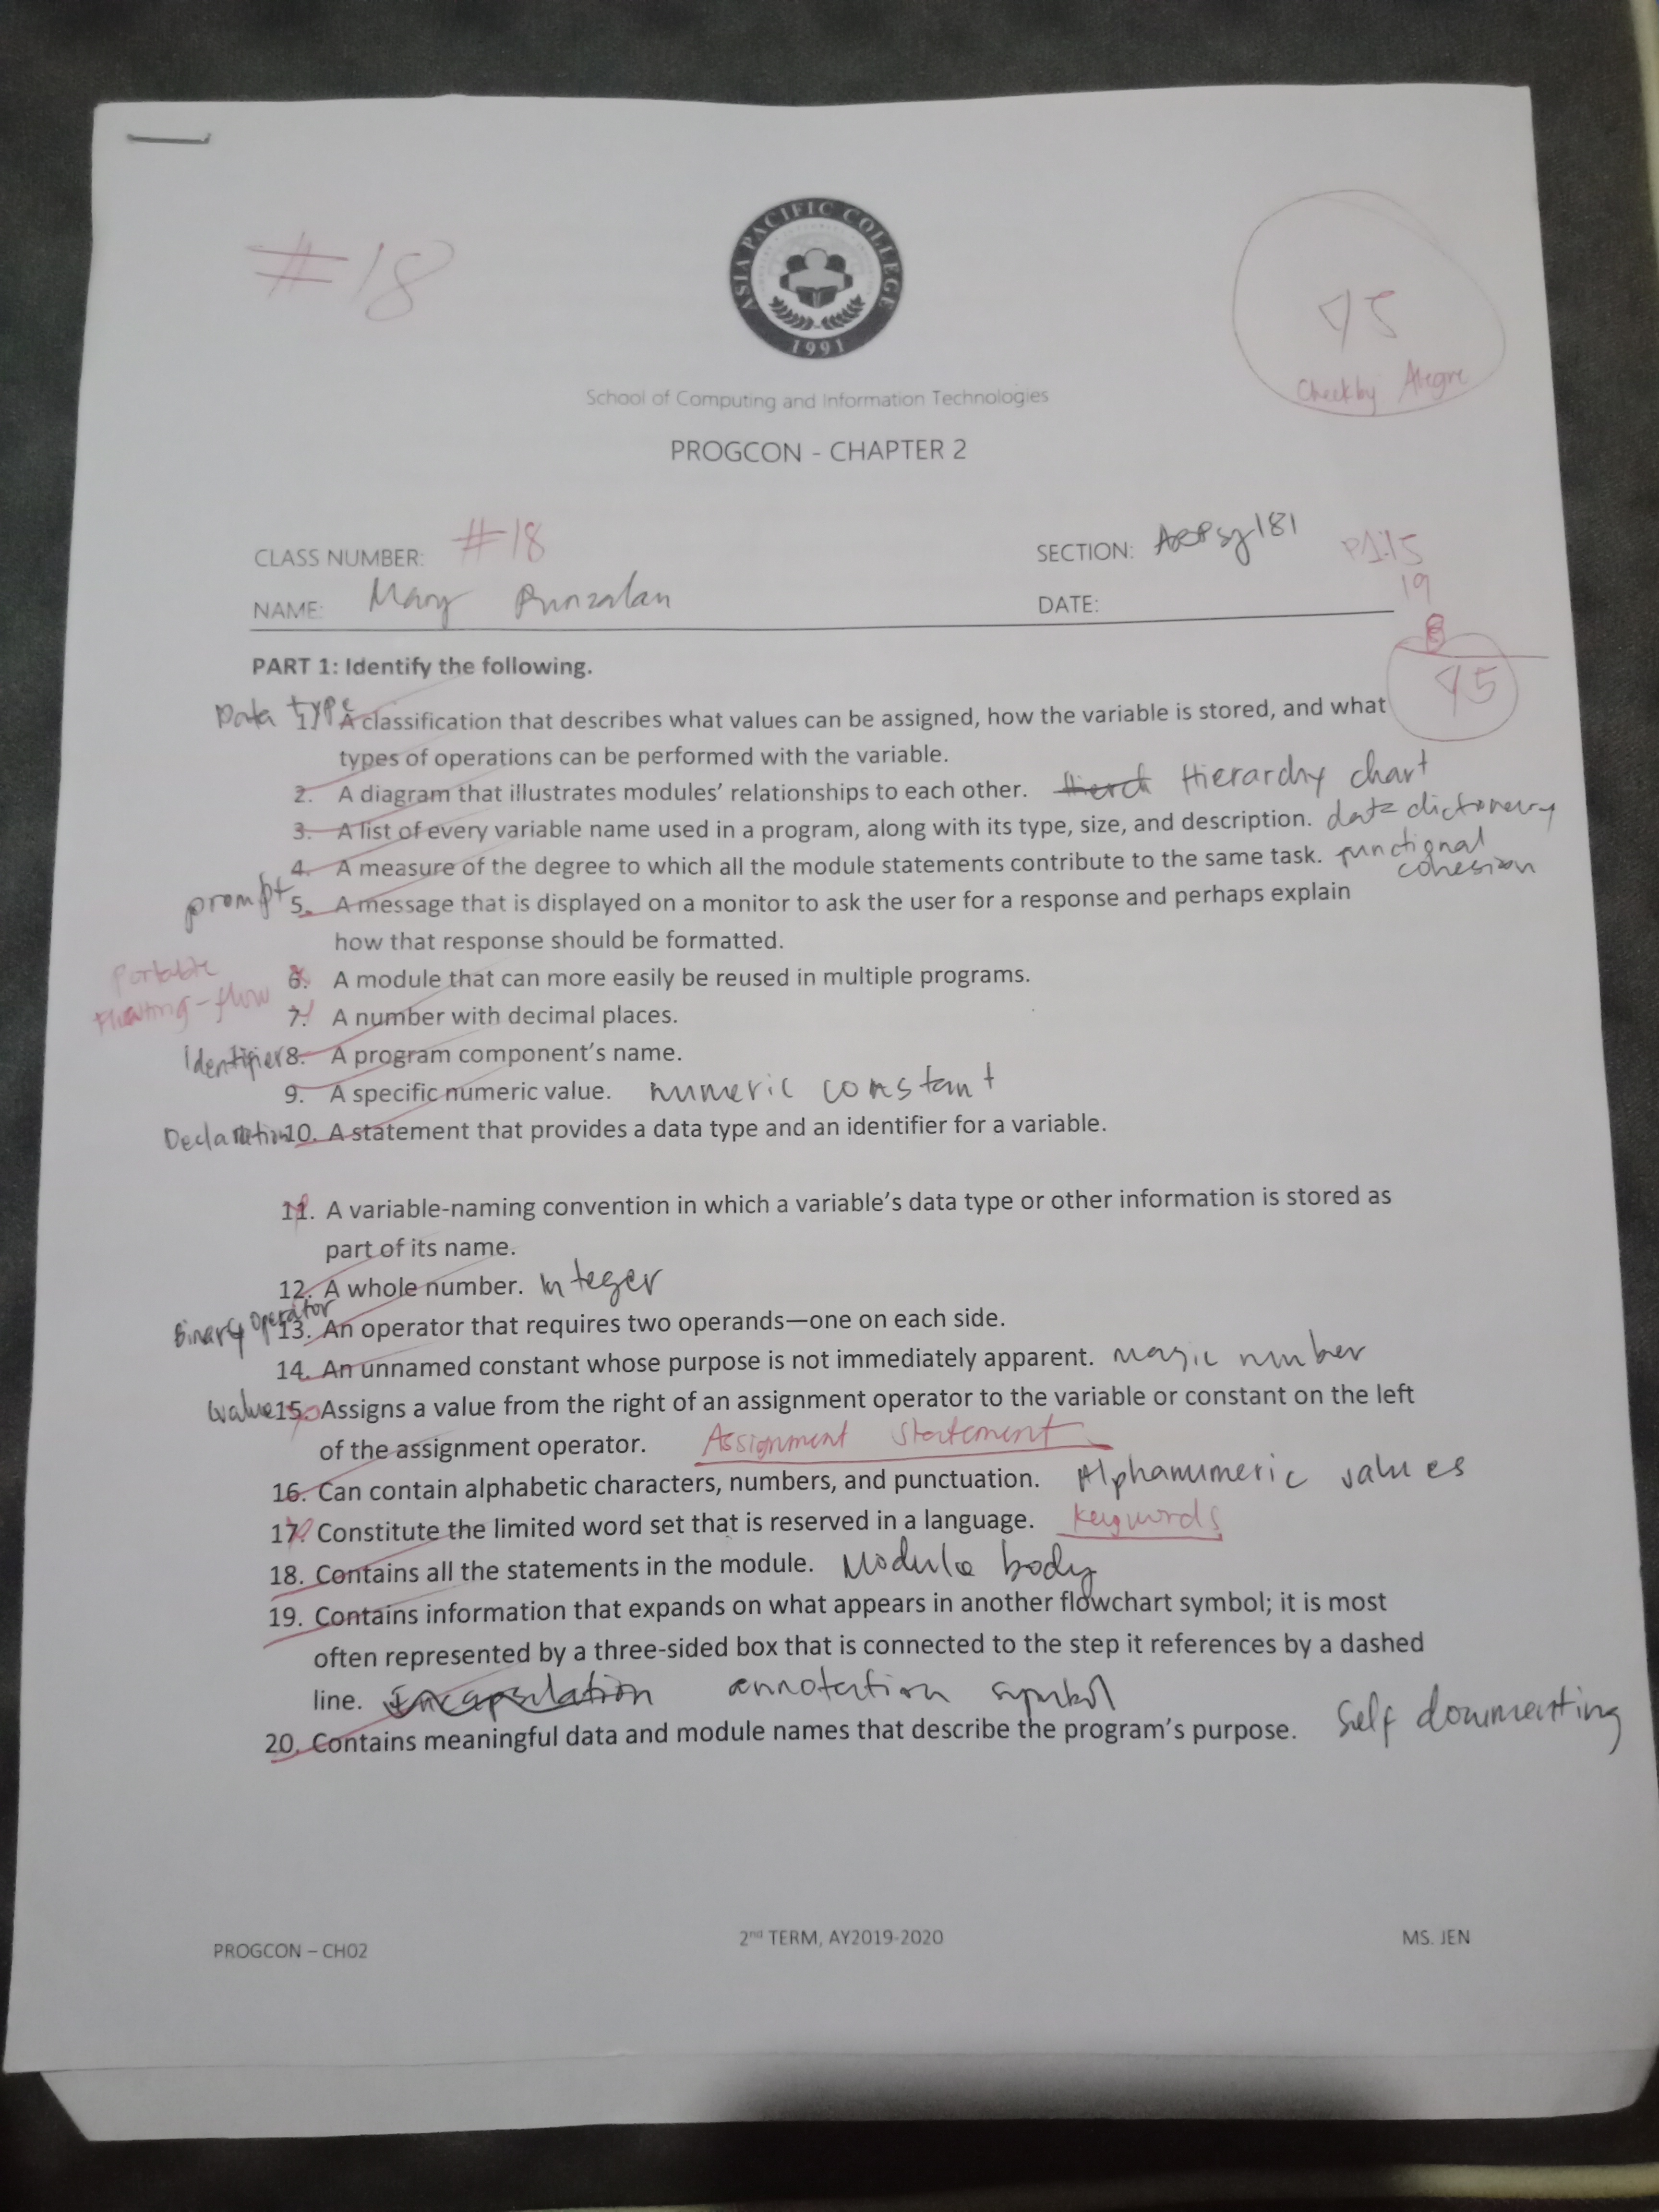 #18
ASIA PACIFIC COLLEGE
1991
45
Check by Alegre
School of Computing and Information Technologies
PROGCON - CHAPTER 2
CLASS NUMBER: #18
SECTION:
P1:15
NAME: Mary Punzalan
DATE:
19
8
45
PART 1: Identify the following.
Data type 1. A classification that describes what values can be assigned, how the variable is stored, and what
types of operations can be performed with the variable.
2. A diagram that illustrates modules' relationships to each other. Hierarchy chart
3. A list of every variable name used in a program, along with its type, size, and description. data dictionary
4. A measure of the degree to which all the module statements contribute to the same task. functional
cohesion
prompt 5. A message that is displayed on a monitor to ask the user for a response and perhaps explain
how that response should be formatted.
Portable 6. A module that can more easily be reused in multiple programs.
Floating-flow 7. A number with decimal places.
Identifier 8. A program component's name.
9. A specific numeric value. numeric constant
Declaration 10. A statement that provides a data type and an identifier for a variable.
11. A variable-naming convention in which a variable's data type or other information is stored as
part of its name.
12. A whole number. Integer
Binary Operator 13. An operator that requires two operands—one on each side.
14. An unnamed constant whose purpose is not immediately apparent. magic number
lvalue 15. Assigns a value from the right of an assignment operator to the variable or constant on the left
of the assignment operator. Assignment statement
16. Can contain alphabetic characters, numbers, and punctuation. Alphanumeric values
17. Constitute the limited word set that is reserved in a language. keywords
18. Contains all the statements in the module. Module body
19. Contains information that expands on what appears in another flowchart symbol; it is most
often represented by a three-sided box that is connected to the step it references by a dashed
line. Encapsulation annotation symbol
20. Contains meaningful data and module names that describe the program's purpose. Self documenting
PROGCON – CH02
2nd TERM, AY2019-2020
MS. JEN